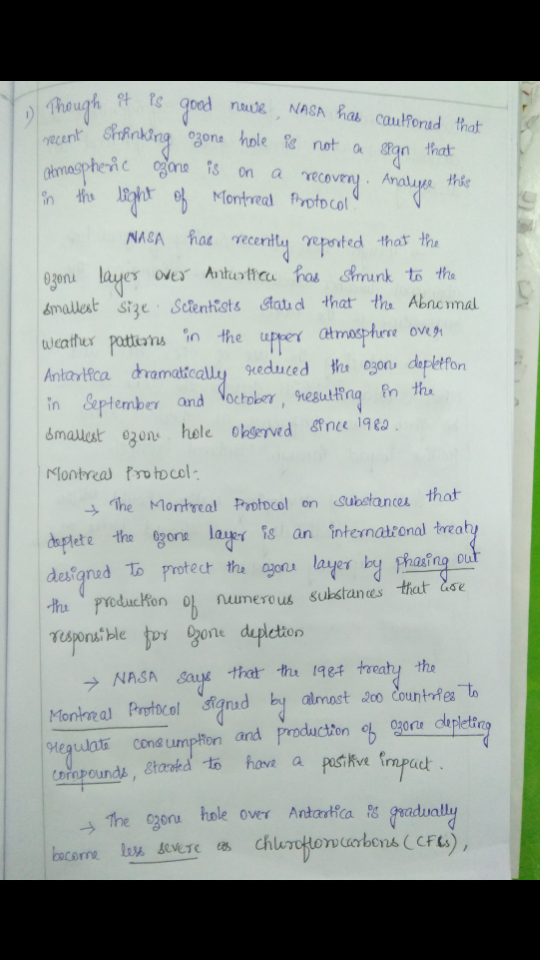 1) Though it is good news, NASA has cautioned that
recent shrinking ozone hole is not a sign that
atmospheric ozone is on a recovery. Analyse this
in the light of Montreal Protocol.
NASA has recently reported that the
ozone layer over Antartica has shrunk to the
smallest size. Scientists stated that the Abnormal
weather patterns in the upper atmosphere over
Antartica dramatically reduced the ozone depletion
in September and October, resulting in the
smallest ozone hole observed since 1982.
Montreal Protocol:-
→ The Montreal Protocol on substances that
deplete the ozone layer is an international treaty
designed To protect the ozone layer by phasing out
the production of numerous substances that are
responsible for ozone depletion
→ NASA says that the 1987 treaty the
Montreal Protocol signed by almost 200 countries to
regulate consumption and production of ozone depleting
compounds, started to have a positive impact.
→ The ozone hole over Antartica is gradually
become less severe as chluroflorocarbons (CFCs),